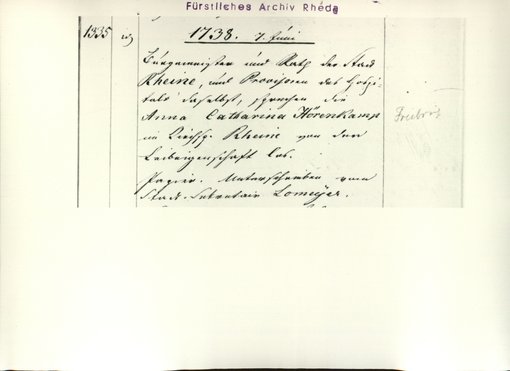 Fürstliches Archiv Rheda
1335
1738. 7. Juni
Bürgermeister und Rath der Stadt
Rheine, und Provisoren des Hospi-
tals daselbst, sprechen die
Anna Catharina Hörenkamp
im Kirchsp. Rheine von der
Leibeigenschaft los.
Papier. Unterschrieben vom
Stadt-Sekretair Lomeyer.
Freibrief